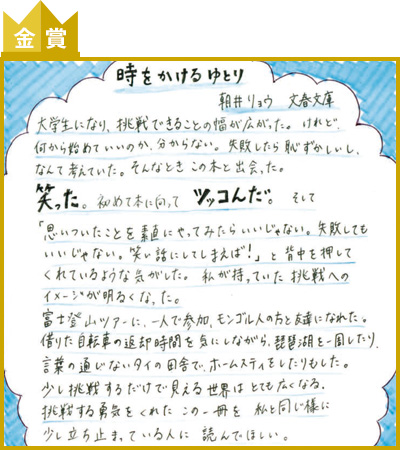 金賞
時をかけるゆとり
朝井リョウ 文春文庫
大学生になり、挑戦できることの幅が広がった。けれど、
何から始めていいのか、分からない。失敗したら恥ずかしいし、
なんて考えていた。そんなとき この本と出会った。
笑った。初めて本に向って ツッコんだ。そして
「思いついたことを素直にやってみたらいいじゃない。失敗しても
いいじゃない。笑い話にしてしまえば!」と背中を押して
くれているような気がした。私が持っていた挑戦への
イメージが明るくなった。
富士登山ツアーに、一人で参加、モンゴル人の方と友達になれた。
借りた自転車の返却時間を気にしながら、琵琶湖を一周したり、
言葉の通じないタイの田舎で、ホームスティをしたりもした。
少し挑戦するだけで見える世界は とても広くなる。
挑戦する勇気をくれた この一冊を 私と同じ様に
少し立ち止まっている人に 読んでほしい。